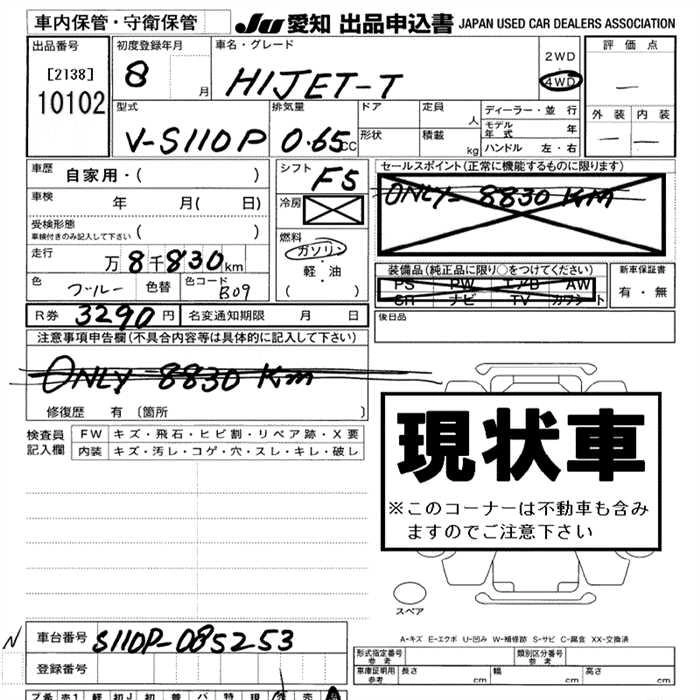 車内保管・守衛保管
JU 愛知 出品申込書 JAPAN USED CAR DEALERS ASSOCIATION
出品番号 初度登録年月 車名・グレード 2WD 評価点
[2138] 8 月 HIJET-T 4WD —
10102
型式 排気量 ドア 定員 人 ディーラー・並行 外装 内装
V-S110P 0.65CC 形状 積載 kg モデル年式 年 — —
ハンドル 左・右
車歴 自家用・( ) シフト F5 セールスポイント(正常に機能するものに限ります)
車検 年 月( 日) 冷房 ONLY 8830 Km
受検形態 ( )
車検付きのみ記入して下さい
燃料 ガソリン・軽・油 ( )
走行 万8千830km 装備品(純正品に限り○をつけてください) 新車保証書
PS PW エアB AW 有・無
SR ナビ TV カワシート
色 ブルー 色替 色コード B09
R券 3290円 名変通知期限 月 日 後日品
注意事項申告欄(不具合内容等は具体的に記入して下さい)
ONLY 8830 Km
修復歴 有 〔箇所 〕
検査員 FW キズ・飛石・ヒビ割・リペア跡・X要
記入欄 内装 キズ・汚レ・コゲ・穴・スレ・キレ・破レ
現状車
※このコーナーは不動車も含み
ますのでご注意下さい
スペア
N 車台番号 S110P-085253
A-キズ E-エクボ U-凹み W-補修跡 S-サビ C-腐食 XX-交換済
登録番号 形式指定番号 参考 類別区分番号 参考
車庫証明用 参考 長さ cm 幅 cm 高さ cm